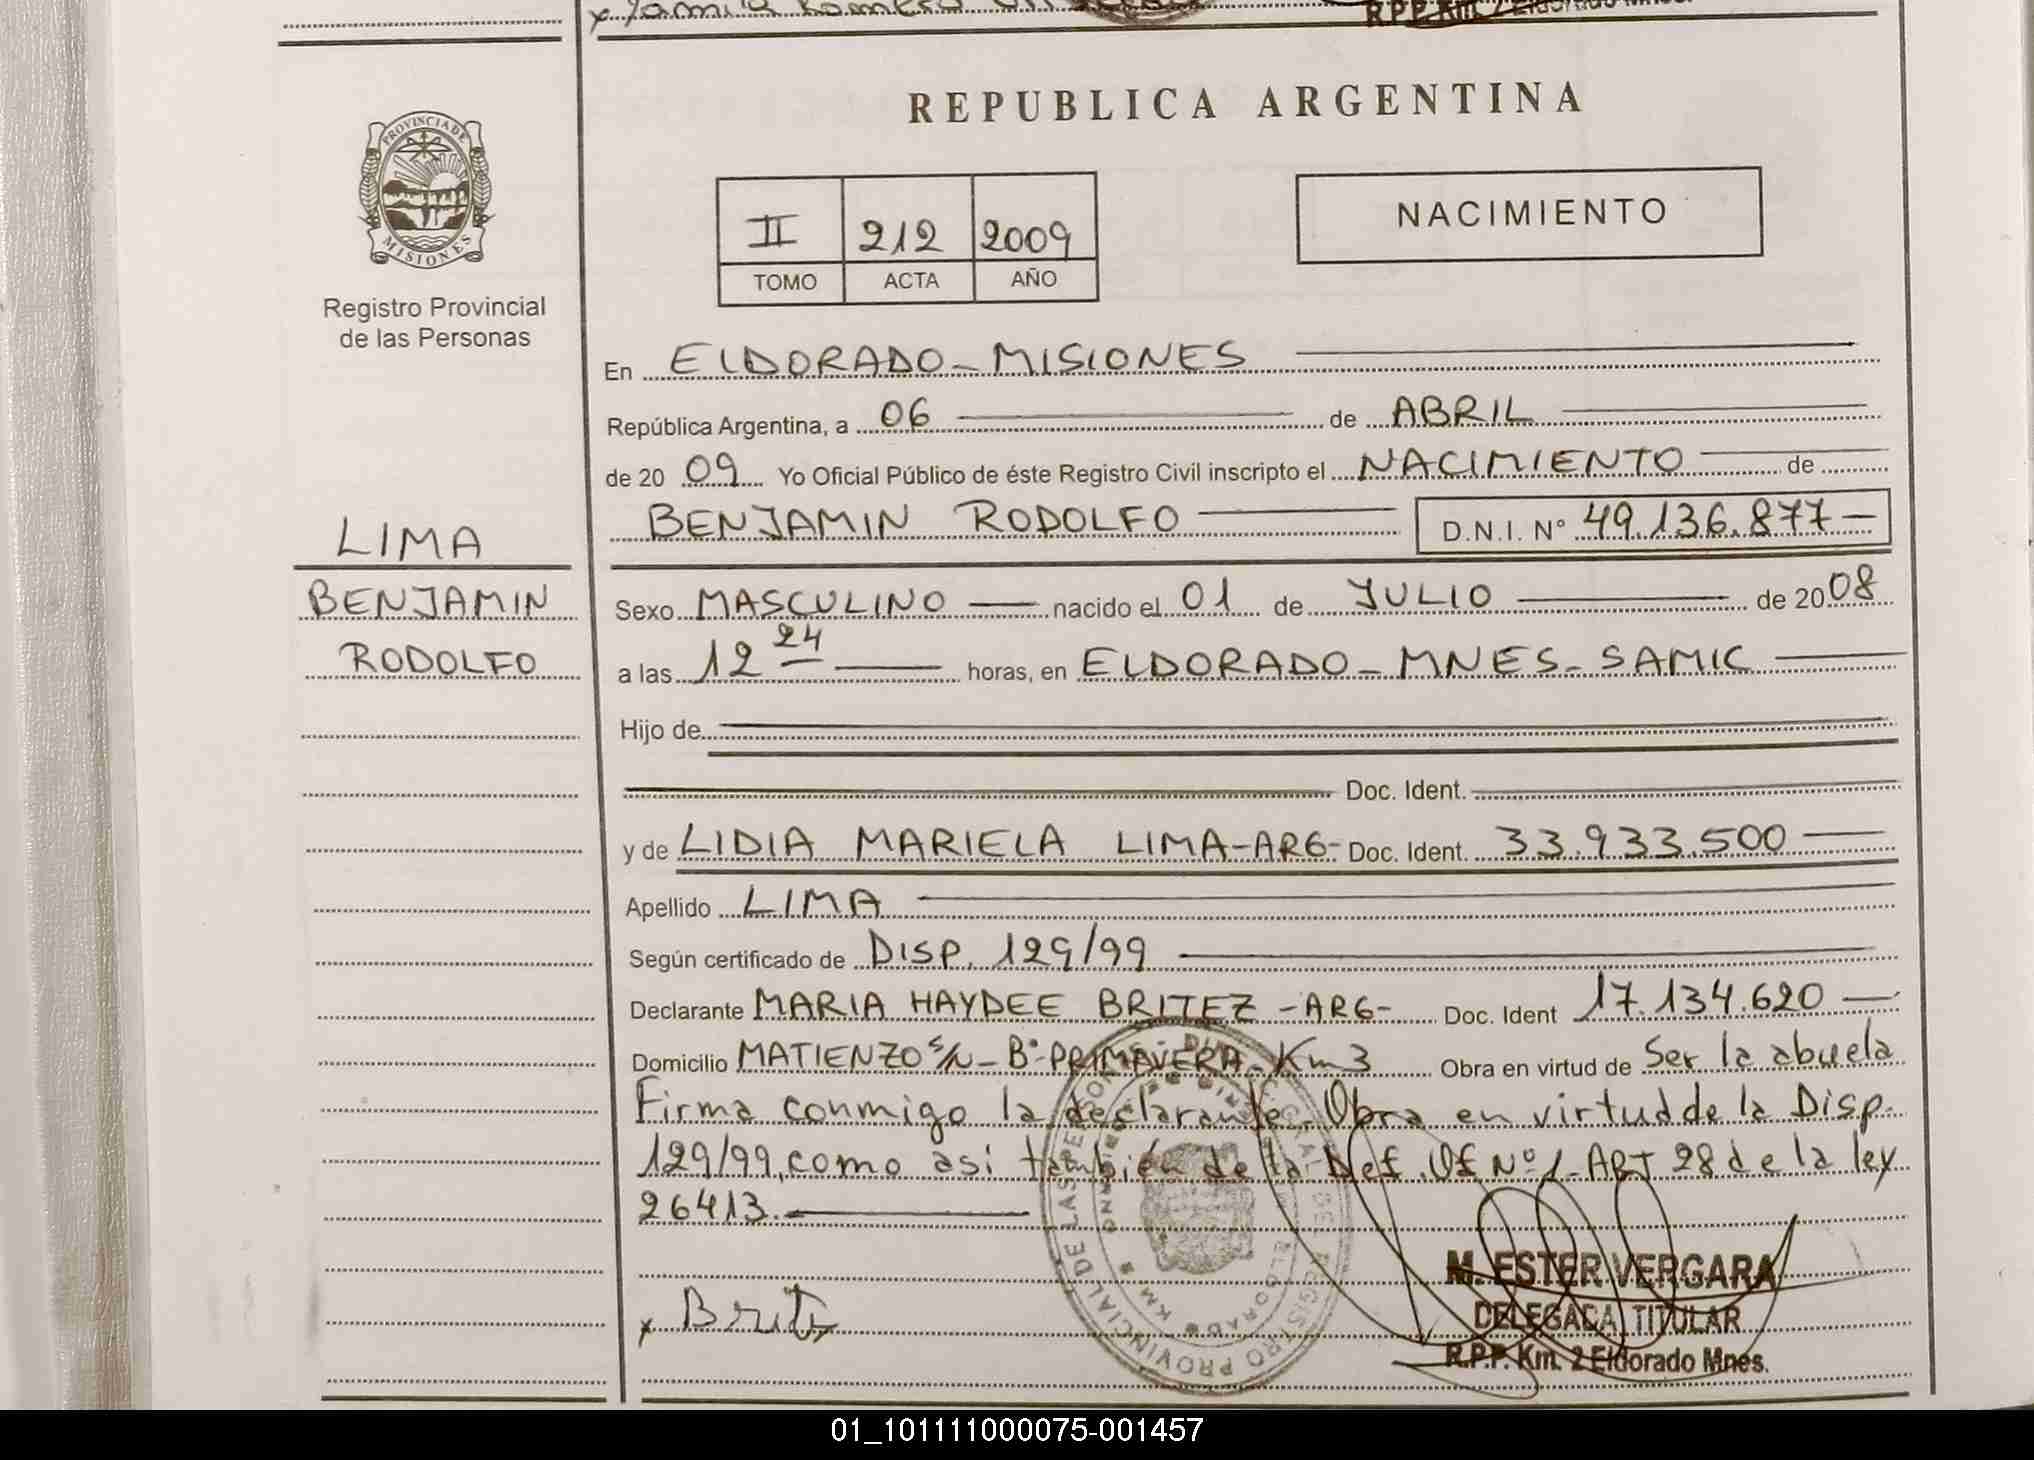 R.P.P. Km. 2 Eldorado Mnes.
REPUBLICA ARGENTINA
PROVINCIA DE MISIONES
Registro Provincial
de las Personas
II 212 2009
TOMO ACTA AÑO
NACIMIENTO
En ELDORADO - MISIONES
República Argentina, a 06 de ABRIL
de 20 09 Yo Oficial Público de éste Registro Civil inscripto el NACIMIENTO de
BENJAMIN RODOLFO D.N.I. Nº 49.136.877-
LIMA
BENJAMIN
RODOLFO
Sexo MASCULINO nacido el 01 de JULIO de 20 08
a las 12 24 horas, en ELDORADO - MNES - SAMIC
Hijo de
Doc. Ident.
y de LIDIA MARIELA LIMA-ARG- Doc. Ident. 33.933.500
Apellido LIMA
Según certificado de DISP. 129/99
Declarante MARIA HAYDEE BRITEZ -ARG- Doc. Ident 17.134.620
Domicilio MATIENZO S/N - Bº PRIMAVERA - Km 3 Obra en virtud de Ser la abuela
Firma conmigo la declarante. Obra en virtud de la Disp.
129/99, como asi también de la Def. Of Nº 1 - ART 28 de la ley
26413.
x Brite
M. ESTER VERGARA
DELEGADA TITULAR
R.P.P. Km. 2 Eldorado Mnes.
01_101111000075-001457